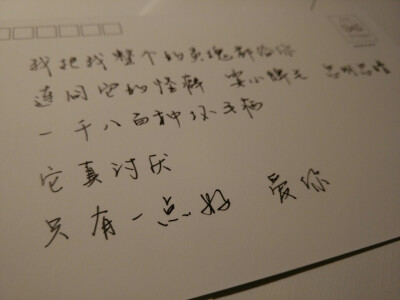 我把我整个的灵魂都给你
连同它的怪癖 耍小脾气 忽明忽暗
一千八百种坏毛病
它真讨厌
只有一点好 爱你